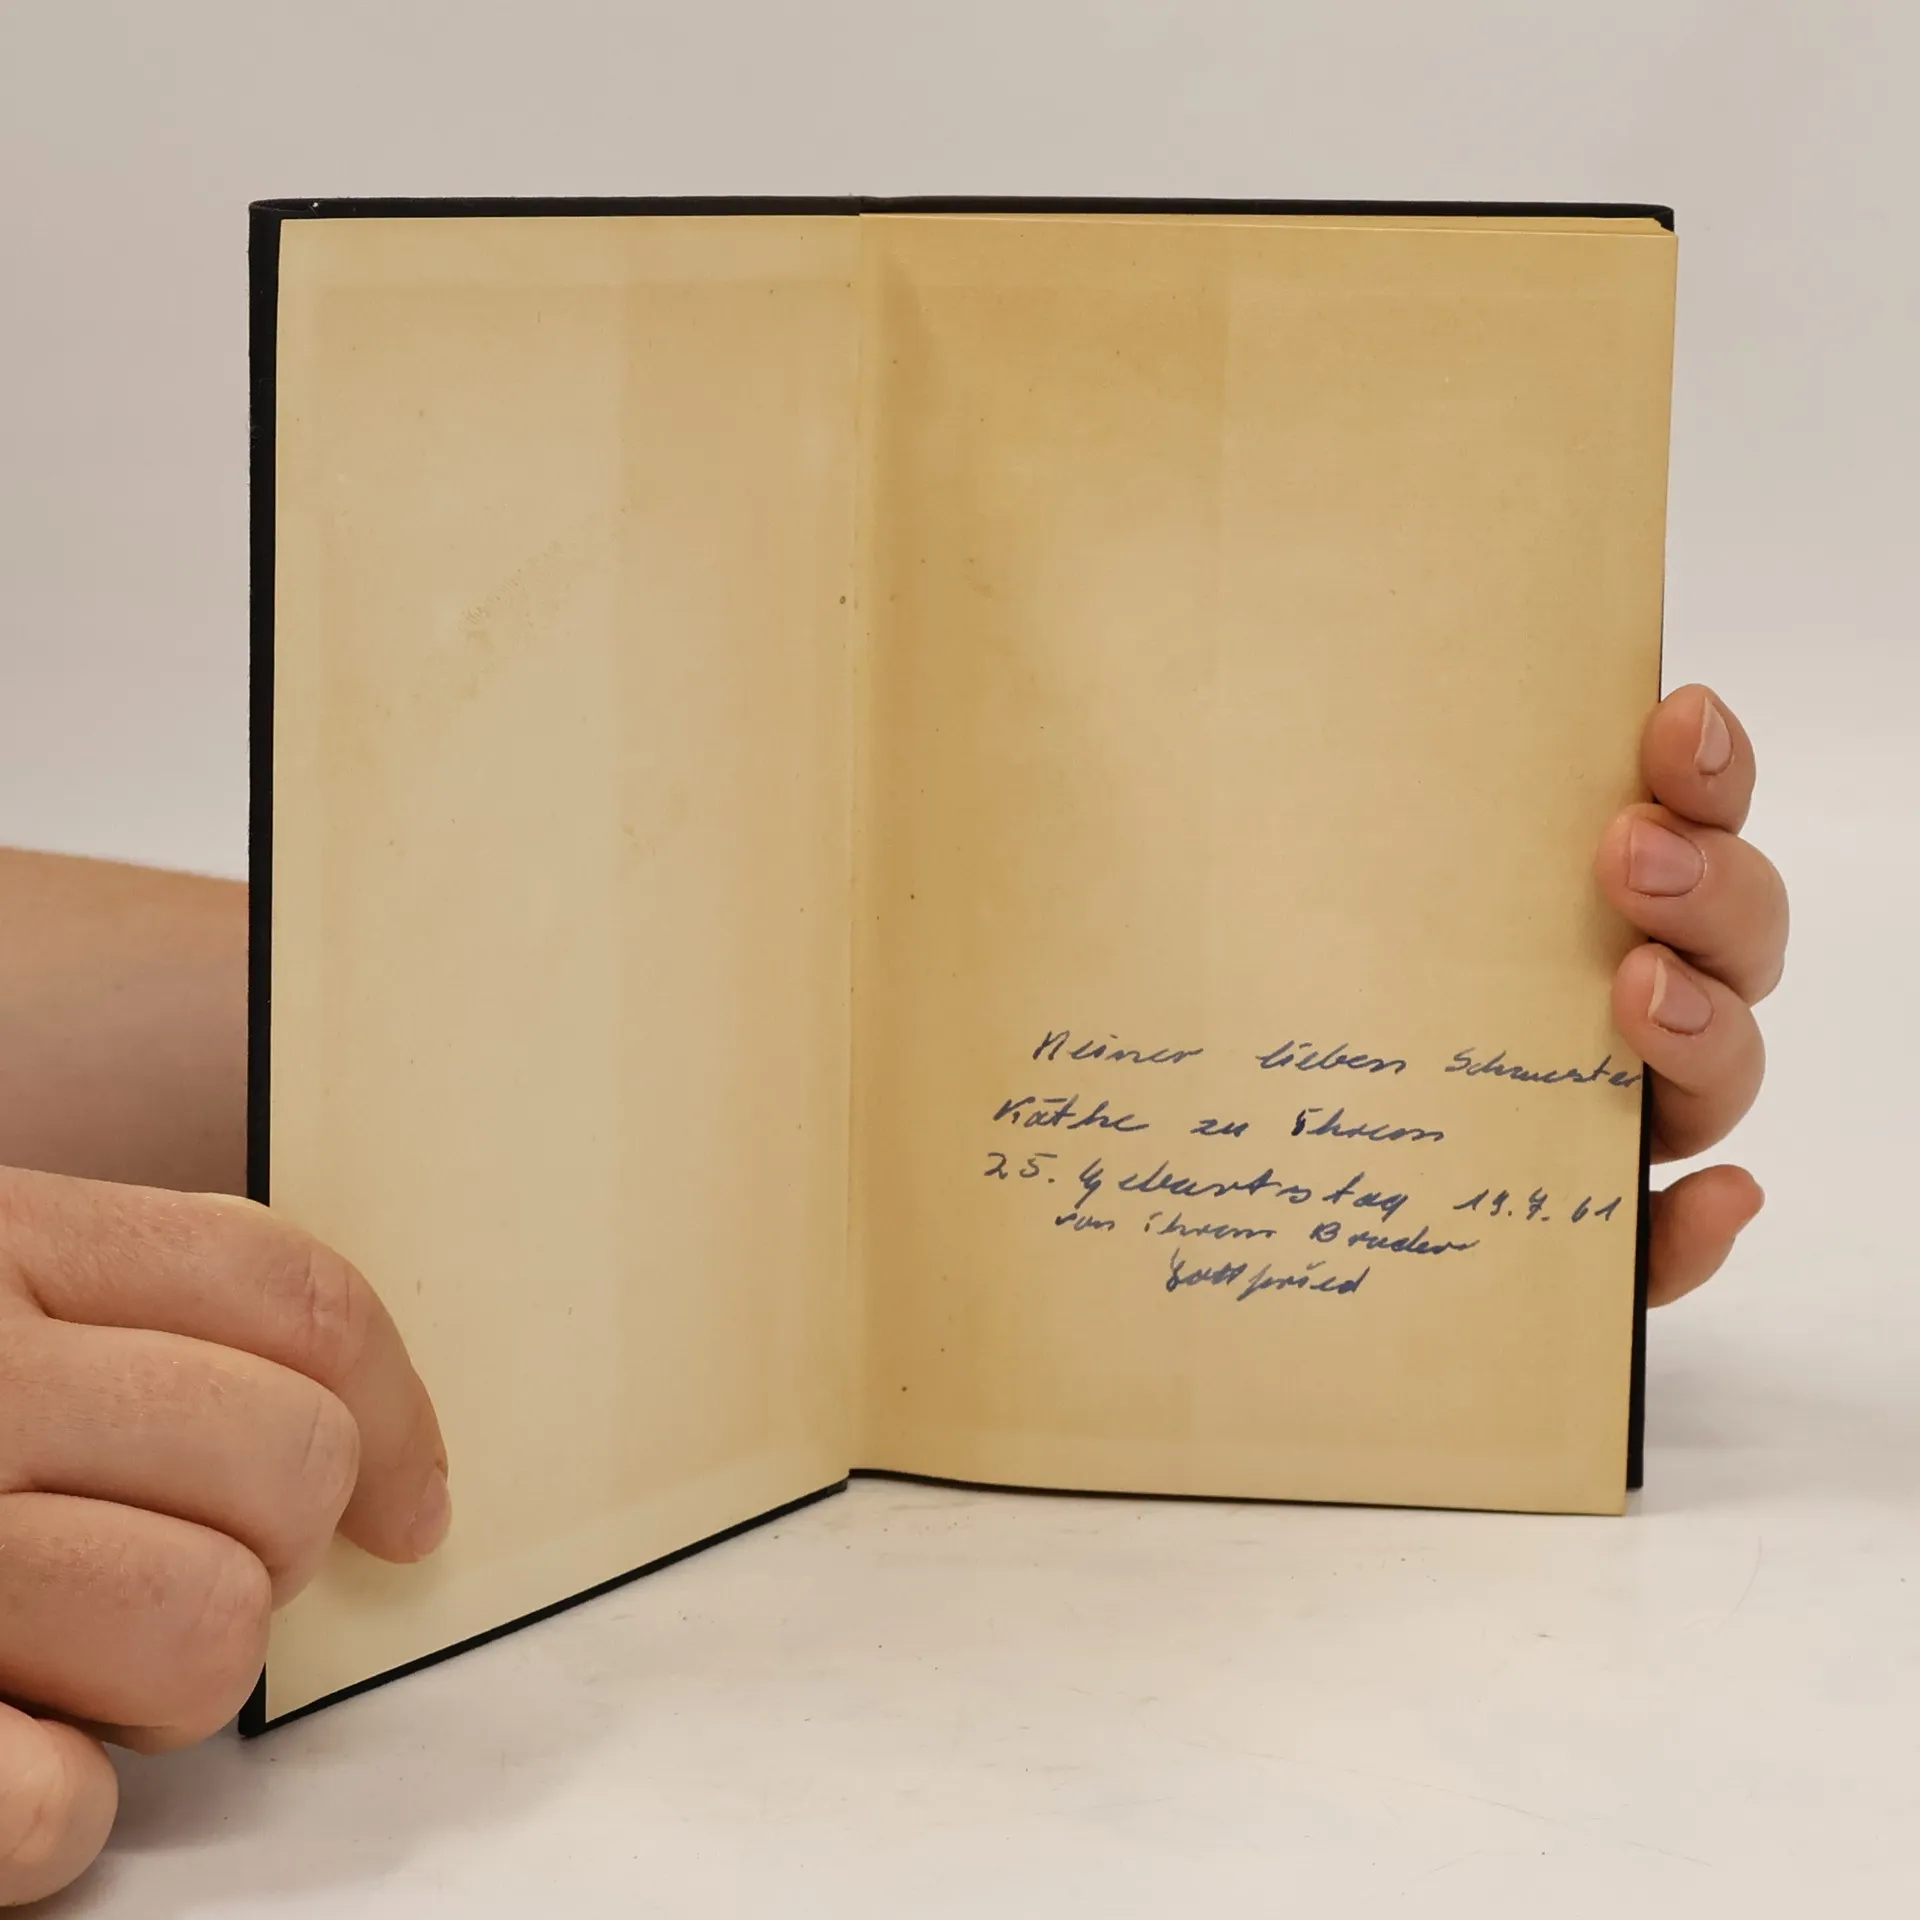 Meiner lieben Schwester
Käthe zu ihrem
25. Geburtstag 19.7.61
von ihrem Bruder
Gottfried